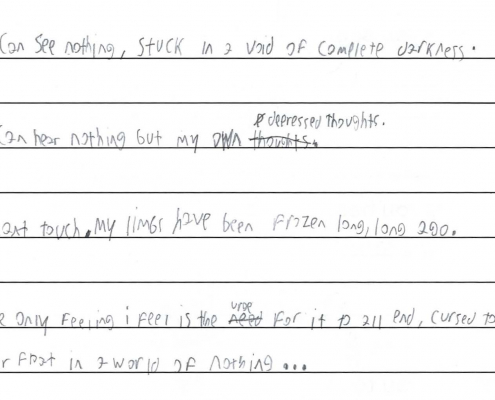 Can see nothing, stuck in a void of complete darkness.
depressed thoughts.
Can hear nothing but my own thoughts.
ant touch. My limbs have been frozen long, long ago.
urge
e only feeling i feel is the need for it to all end, cursed to
r float in a world of nothing...